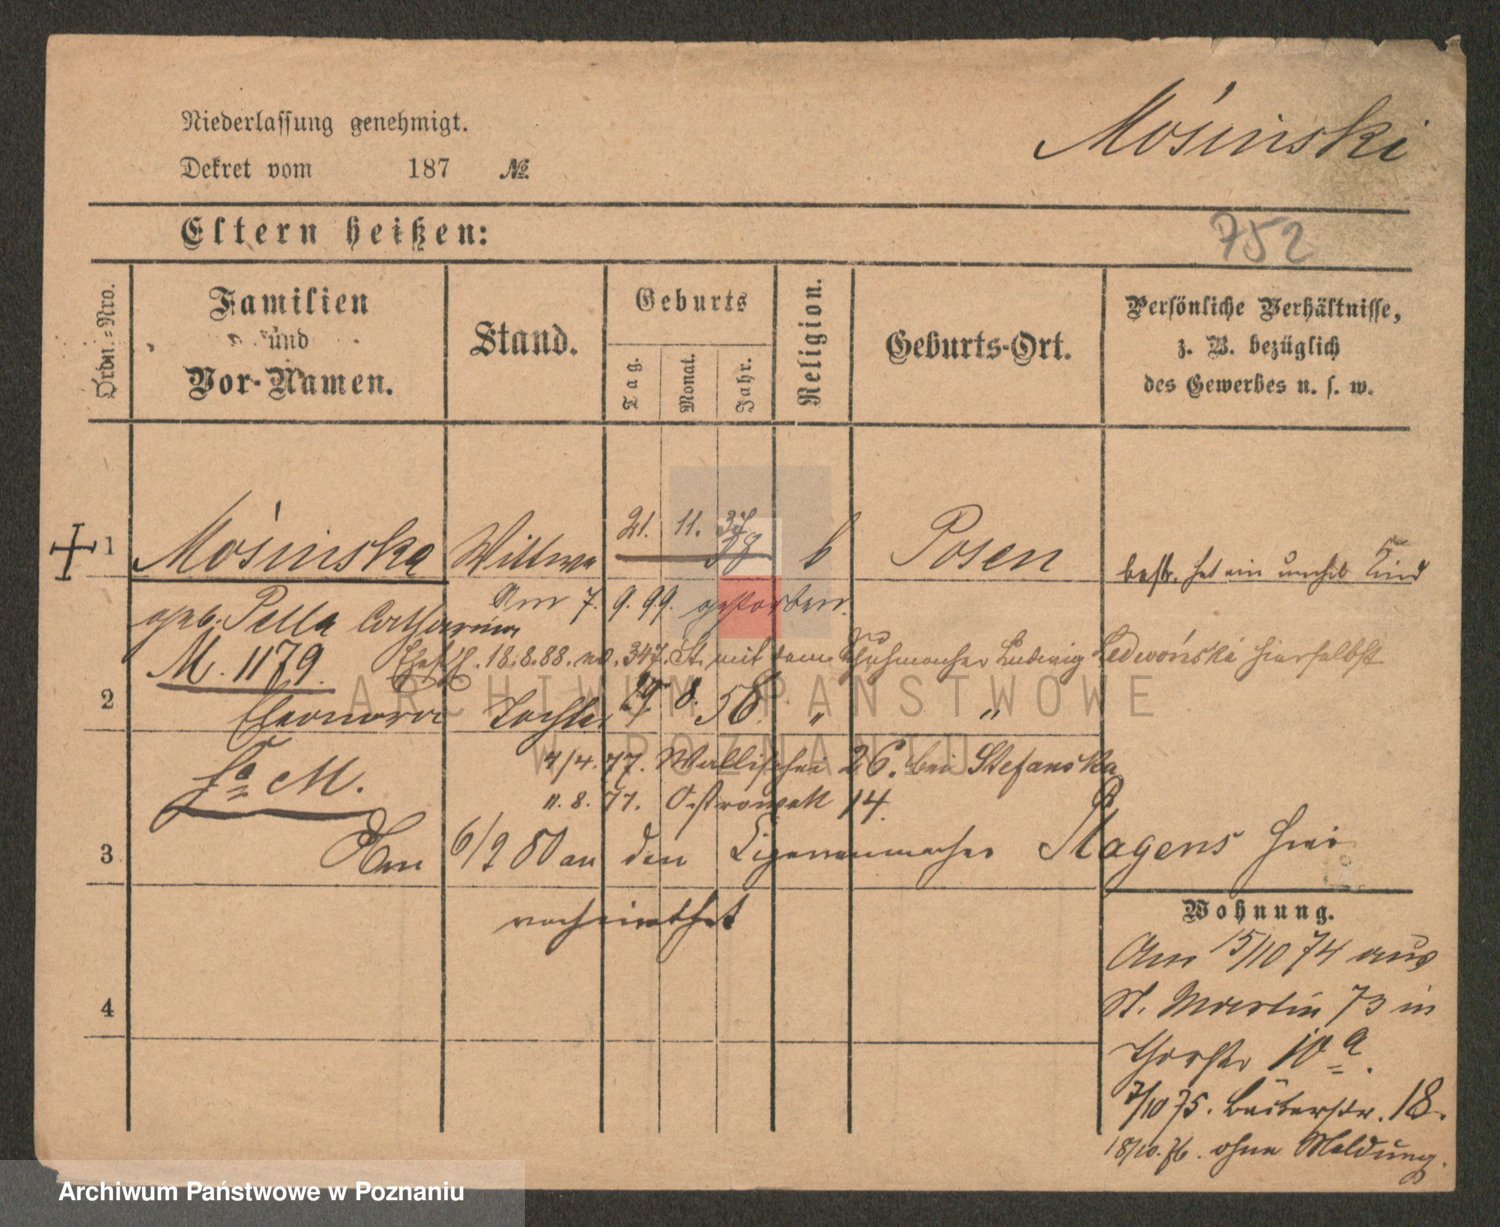 Niederlassung genehmigt.
Mośinski
Dekret vom 187 №
Eltern heißen:
752
Ordn.-Nro.
Familien
und
Vor-Namen.
Stand.
Geburts
Tag.
Monat.
Jahr.
Religion.
Geburts-Ort.
Persönliche Verhältnisse,
z. B. bezüglich
des Gewerbes u. s. w.
1 Mośinska Wittwe 21. 11. 37 k Posen
hat ein unehel Kind
Am 7. 9. 99. gestorben.
geb. Pella Catharina
M. 1179. 18.8.88. no. 347. St. mit dem Schuhmacher Ludwig Ledwóński hierselbst
2 Eleonora Tochter 8. 58. " "
Fa M. 4/4. 77. Wallischei 26. bei Stefanska
11. 8. 77. Ostrowek 14.
3 Am 6/2 80 an den Cigarrenmacher Stagens hier
verheirathet
Wohnung.
Am 15/10 74 aus
St. Martin 73 in
Thorstr 10 a.
4
7/10 75. Bäckerstr. 18.
18/10. 76. ohne Meldung.
ARCHIWUM PAŃSTWOWE
W POZNANIU
Archiwum Państwowe w Poznaniu